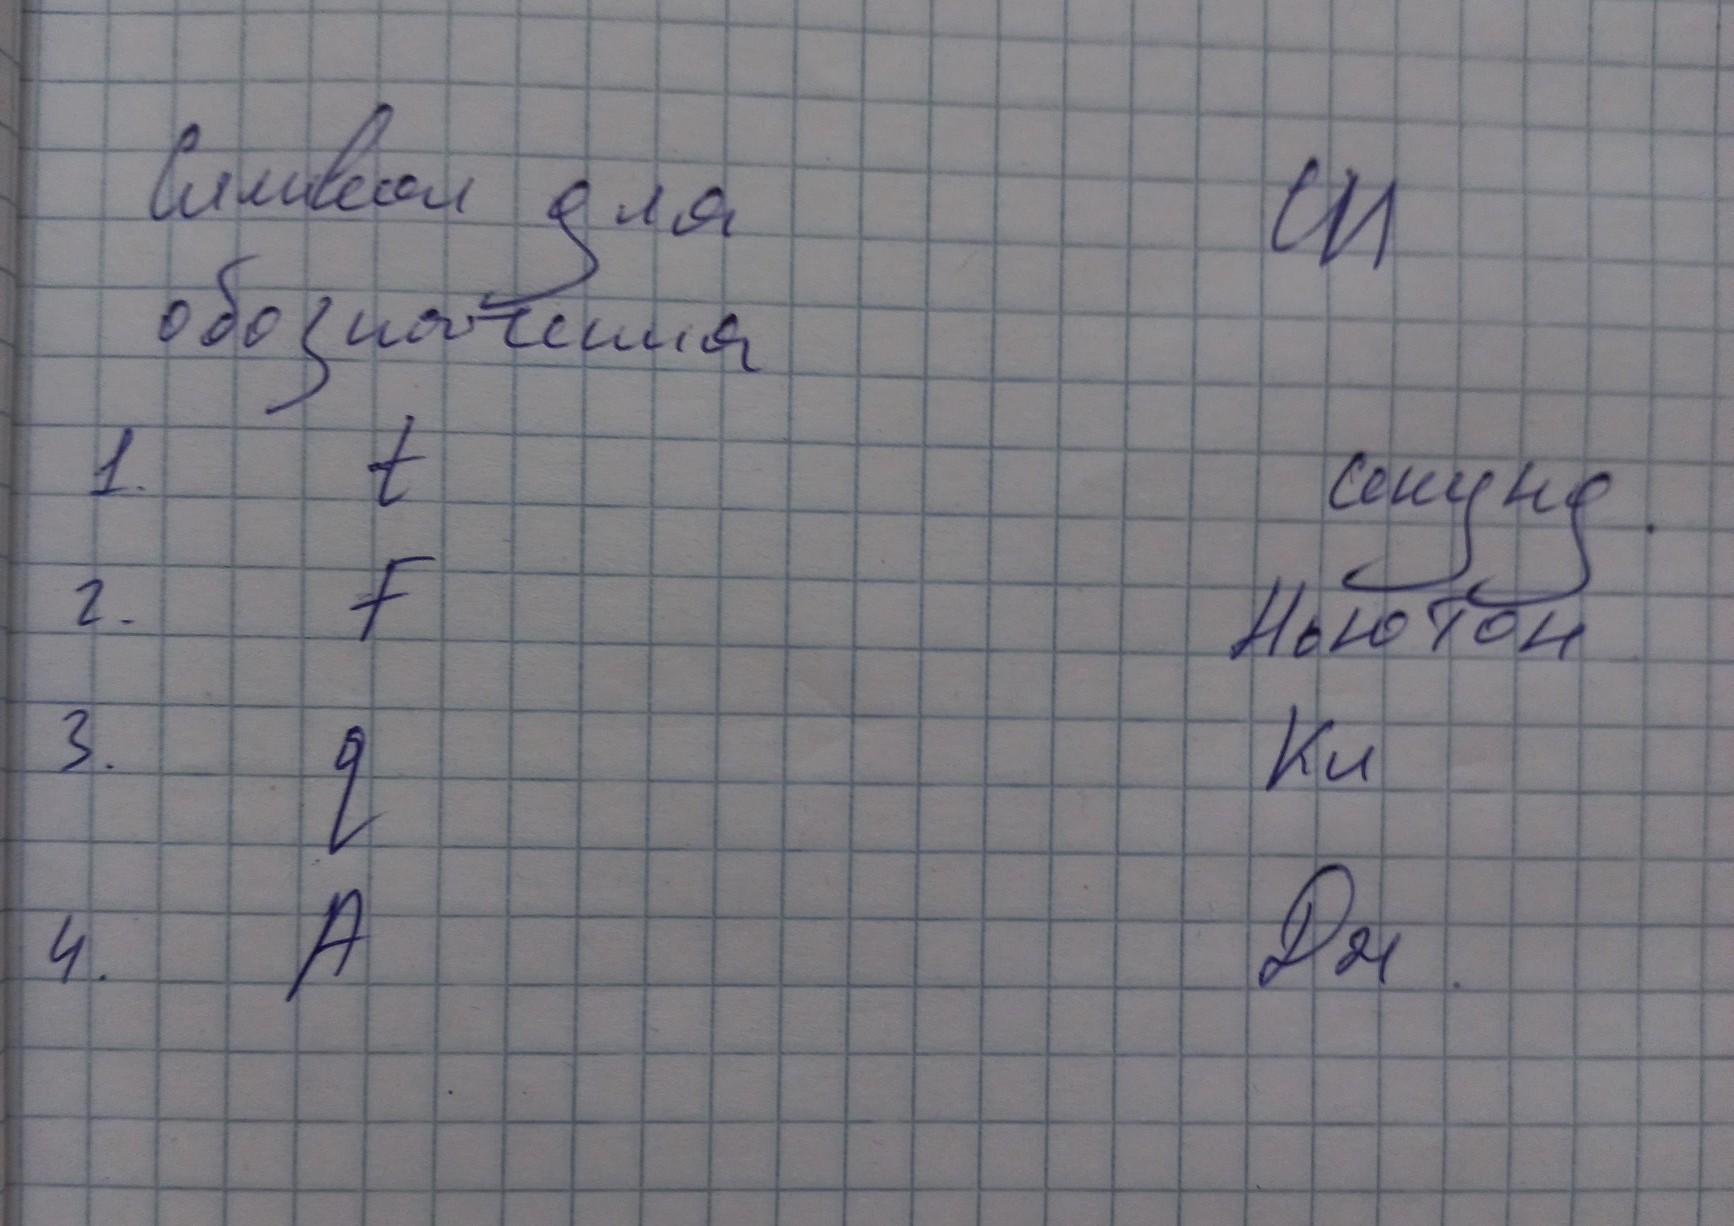 Символ для СИ
обозначения
1. t секунд.
2. F Ньютон
3. q Кл
4. A Дж.